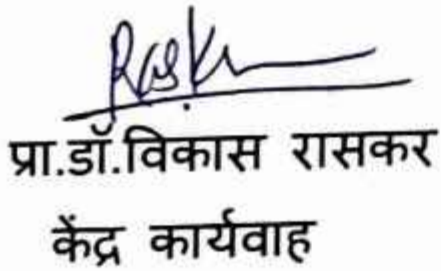 प्रा.डॉ.विकास रासकर
केंद्र कार्यवाह